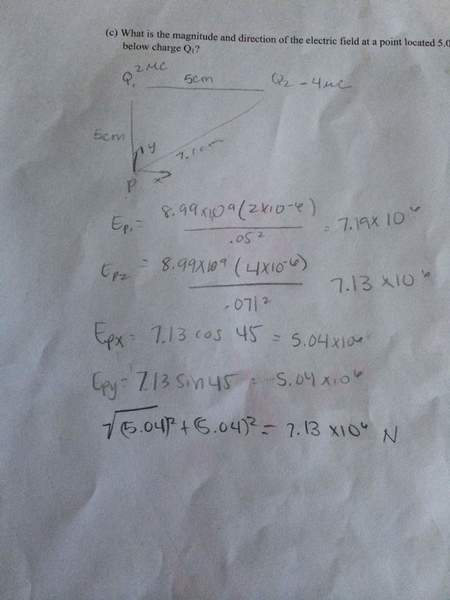 (c) What is the magnitude and direction of the electric field at a point located 5.0
below charge Q₁?
Q₁ 2μC 5cm Q2 -4μC
5cm y 7.1cm
P x
Ep₁ = 8.99x10^9 (2x10^-6) / .05² = 7.19x10^6
Ep2 = 8.99x10^9 (4x10^-6) / .071² 7.13 x10^6
Epx = 7.13 cos 45 = 5.04x10^6
Epy = 7.13 sin 45 = -5.04 x10^6
√(5.04)² + (5.04)² = 7.13 x10^6 N